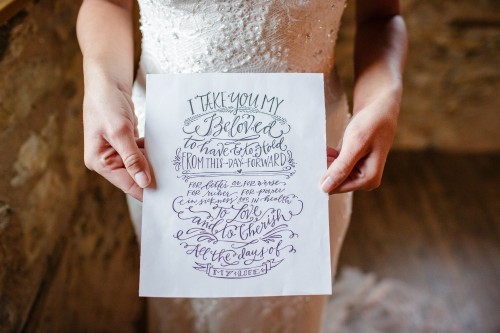 I TAKE YOU MY
Beloved
to have & to Hold
FROM THIS • DAY • FORWARD
FOR better OR FOR worse
FOR richer FOR poorer
in sickness OR in health
To Love
and to Cherish
All the days of
MY LIFE